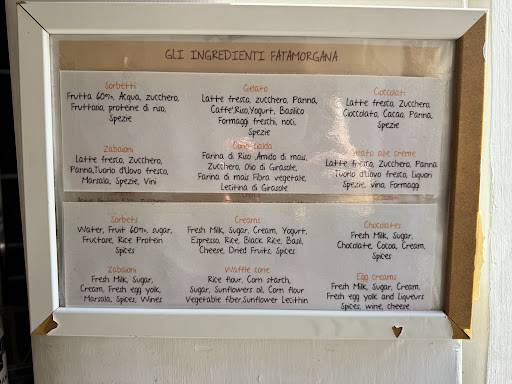 GLI INGREDIENTI FATAMORGANA
Sorbetti
Frutta 60%, Acqua, zucchero,
Fruttosio, proteine di riso,
Spezie
Gelato
Latte fresco, zucchero, Panna,
Caffè, Riso, Yogurt, Basilico
Formaggi freschi, noci,
Spezie
Cioccolati
Latte fresco, Zucchero,
Cioccolato, Cacao, Panna,
Spezie
Zabaioni
Latte fresco, Zucchero,
Panna, Tuorlo d'Uovo fresco,
Marsala, Spezie, Vini
Cono cialda
Farina di Riso, Amido di mais,
Zucchero, Olio di Girasole,
Farina di mais Fibra vegetale,
Lecitina di Girasole
Gelato alle crème
Latte fresco, Zucchero, Panna
Tuorlo d'Uovo fresco, Liquori
Spezie, vino, Formaggi
Sorbets
Water, Fruit 60%, sugar,
Fructose, Rice Protein
Spices
Creams
Fresh Milk, Sugar, Cream, Yogurt,
Espresso, Rice, Black Rice, Basil,
Cheese, Dried Fruits, Spices
Chocolates
Fresh Milk, Sugar,
Chocolate, Cocoa, Cream,
Spices
Zabaioni
Fresh Milk, Sugar,
Cream, Fresh egg yolk,
Marsala, Spices, Wines
Waffle cone
Rice flour, Corn starch,
Sugar, Sunflowers oil, Corn flour
Vegetable fiber, Sunflower Lecithin
Egg creams
Fresh Milk, Sugar, Cream,
Fresh egg yolk and Liqueurs
Spices, wine, cheese